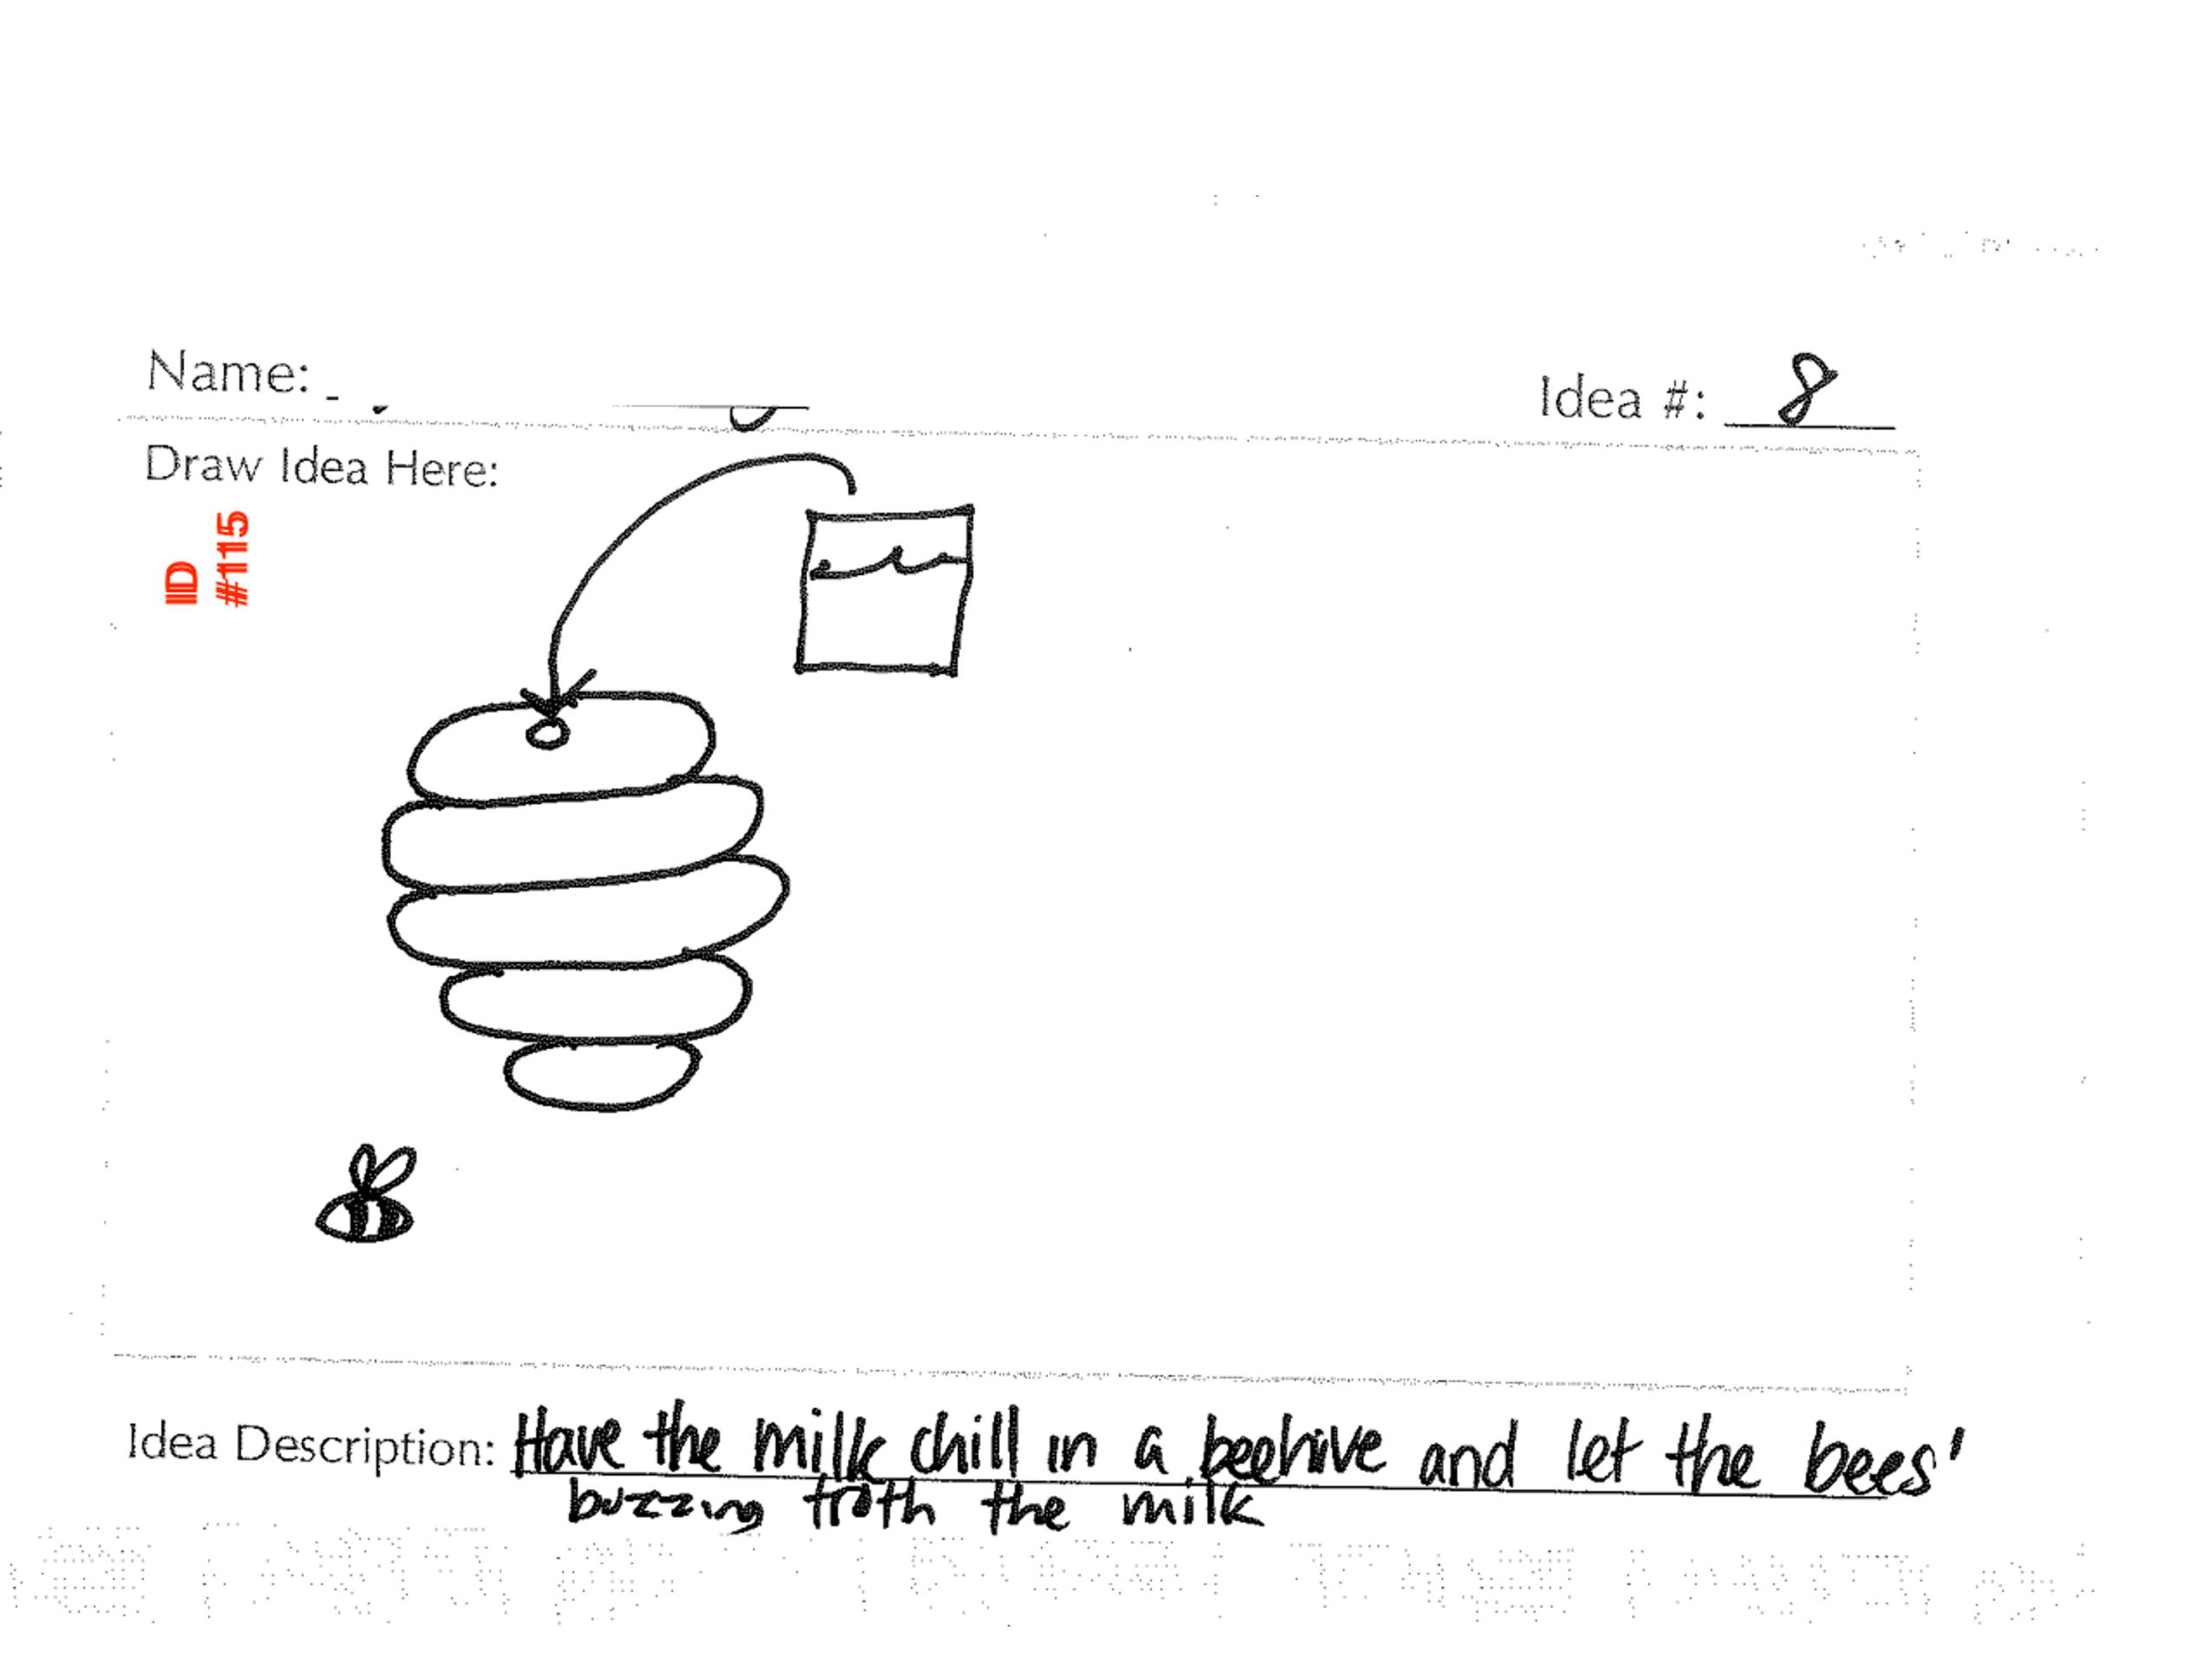 Name:
Idea #: 8
Draw Idea Here:
ID
#115
Idea Description: Have the milk chill in a beehive and let the bees'
buzzing froth the milk